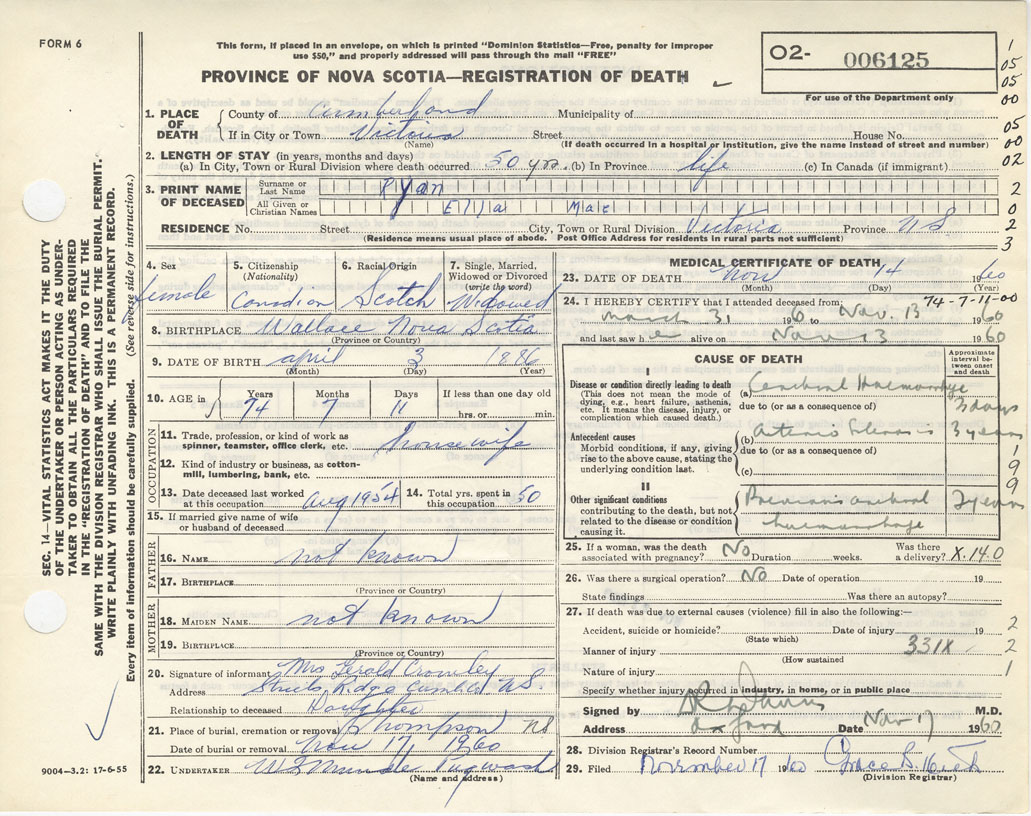 FORM 6
This form, if placed in an envelope, on which is printed "Dominion Statistics—Free, penalty for improper
use $50," and properly addressed will pass through the mail "FREE"
PROVINCE OF NOVA SCOTIA—REGISTRATION OF DEATH
O2- 006125
For use of the Department only
1
05
05
00
05
00
02
2
0
2
3
1. PLACE OF DEATH
County of Cumberland Municipality of
If in City or Town Victoria Street House No.
(Name) (If death occurred in a hospital or institution, give the name instead of street and number)
2. LENGTH OF STAY (in years, months and days)
(a) In City, Town or Rural Division where death occurred 50 yrs. (b) In Province life (c) In Canada (if immigrant)
3. PRINT NAME OF DECEASED
Surname or Last Name Ryan
All Given or Christian Names Ella Mae
RESIDENCE No. Street City, Town or Rural Division Victoria Province NS
(Residence means usual place of abode. Post Office Address for residents in rural parts not sufficient)
4. Sex female
5. Citizenship (Nationality) Canadian
6. Racial Origin Scotch
7. Single, Married, Widowed or Divorced (write the word) Widowed
8. BIRTHPLACE Wallace Nova Scotia
(Province or Country)
9. DATE OF BIRTH april 3 1886
(Month) (Day) (Year)
10. AGE in Years Months Days If less than one day old
74 7 11 hrs. or min.
OCCUPATION
11. Trade, profession, or kind of work as spinner, teamster, office clerk, etc. housewife
12. Kind of industry or business, as cotton-mill, lumbering, bank, etc.
13. Date deceased last worked at this occupation Aug 1954
14. Total yrs. spent in this occupation 50
15. If married give name of wife or husband of deceased
FATHER
16. NAME not known
17. BIRTHPLACE
(Province or Country)
MOTHER
18. MAIDEN NAME not known
19. BIRTHPLACE
(Province or Country)
20. Signature of informant Mrs Gerald Crowley
Address Streets Ridge Cumb Co NS.
Relationship to deceased Daughter
21. Place of burial, cremation or removal Thompson NS
Date of burial or removal Nov 17, 1960
22. UNDERTAKER Pugwash
(Name and address)
MEDICAL CERTIFICATE OF DEATH
23. DATE OF DEATH Nov 14 1960
(Month) (Day) (Year)
74-7-11-00
24. I HEREBY CERTIFY that I attended deceased from:
march 31 1960 to Nov. 13 1960
and last saw her alive on Nov 13 1960
CAUSE OF DEATH
Approximate interval between onset and death
I
Disease or condition directly leading to death
(This does not mean the mode of dying, e.g., heart failure, asthenia, etc. It means the disease, injury, or complication which caused death.)
(a) Cerebral Haemorrhage 3 days
due to (or as a consequence of)
Antecedent causes
Morbid conditions, if any, giving rise to the above cause, stating the underlying condition last.
(b) Arterio Sclerosis 3 years
due to (or as a consequence of)
(c)
1
9
9
II
Other significant conditions
contributing to the death, but not related to the disease or condition causing it.
Previous cerebral haemorrhage 2 years
25. If a woman, was the death associated with pregnancy? No Duration weeks. Was there a delivery? X.140
26. Was there a surgical operation? No Date of operation 19
State findings Was there an autopsy?
27. If death was due to external causes (violence) fill in also the following:—
Accident, suicide or homicide? Date of injury 19 2
(State which)
Manner of injury 331X 2
(How sustained)
Nature of injury 1
Specify whether injury occurred in industry, in home, or in public place
Signed by M.D.
Address Oxford Date Nov 17 1960
28. Division Registrar's Record Number
29. Filed November 17 1960 Grace B.
(Division Registrar)
SEC. 14—VITAL STATISTICS ACT MAKES IT THE DUTY
OF THE UNDERTAKER OR PERSON ACTING AS UNDER-
TAKER TO OBTAIN ALL THE PARTICULARS REQUIRED
IN THE "REGISTRATION OF DEATH" AND TO FILE THE
SAME WITH THE DIVISION REGISTRAR WHO SHALL ISSUE THE BURIAL PERMIT.
WRITE PLAINLY WITH UNFADING INK. THIS IS A PERMANENT RECORD.
Every item of information should be carefully supplied. (See reverse side for instructions.)
9004—3.2: 17-6-55